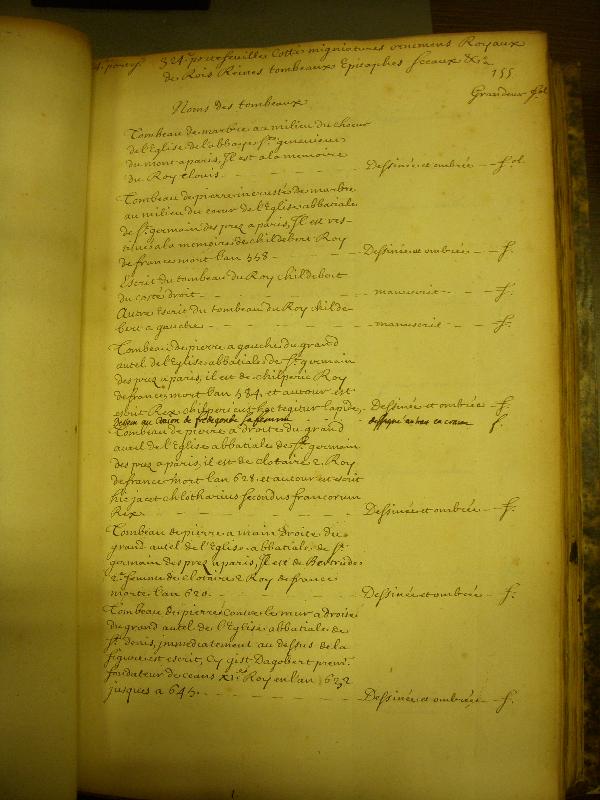 324e. portefeuille Cotté mignatures ornemens Royaux
de Rois Reines tombeaux Epitaphes sceaux &ca
155
Noms des tombeaux
Grandeur fol
Tombeau de marbre au milieu du choeur
de l'Eglise de l'abbaye Ste genevieve
du mont a paris, Il est a la memoire
du Roy Clouis. Dessinée et ombrée fol.
Tombeau de pierre incrusté de marbre
au milieu du coeur de l'Eglise abbatiale
de St. germain des prez a paris, Il est res-
titué a la memoire de childebert Roy
de france mort l'an 558 Dessinée et ombrée f.
Escrit du tombeau du Roy childebert
du costé droit manuscrit f.
Autre Escrit du tombeau du Roy childe
bert a gauche manuscrit f.
Tombeau de pierre a gauche du grand
autel de l'Eglise abbatiale de St germain
des prez a paris, il est de chilperic Roy
de france mort l'an 584. et autour est
escrit Rex chilpericus hoc tegitur lapide, Dessinée et ombrée f.
dessein au craion de fredegonde sa femme en craion f.
Tombeau de pierre a droite du grand
autel de l'Eglise abbatiale de St. germain
des prez a paris, il est de clotaire 2. Roy
de france mort l'an 628. et autour est escrit
hic jacet chlotharius secondus francorum
Rex Dessinée et ombrée f.
Tombeau de pierre a main droite du
grand autel de l'Eglise abbatiale de St
germain des prez a paris, Il est de Bertrude
2e. femme de clotaire 2 Roy de france
morte l'an 620. Dessinée et ombrée f.
Tombeau de pierre Contre le mur a droite
du grand autel de l'Eglise abbatiale de
St. denis, immediatement au dessus de la
figure est escrit, Cy gist Dagobert premr.
fondateur de ceans Roy en l'an 632
jusques a 645. Dessinée et ombrée f.